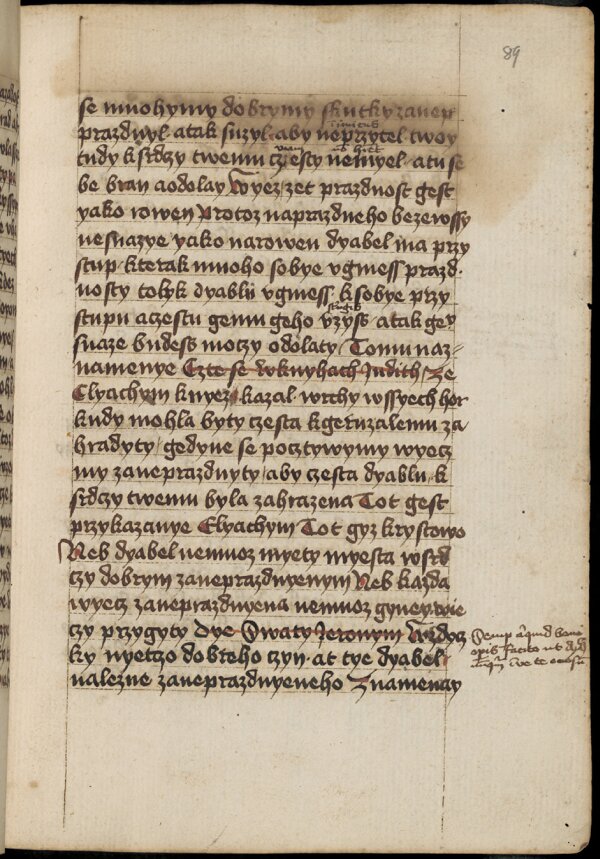 89
se mnohymy dobrymy skutky zanep
prazdnyl. atak suzyl. aby neprzytel twoy
tudy k srdczy twemu czesty nemyel. atu se
be bran aodolay Wyez zet prazdnost gest
yako rowen Protoz naprazdneho bezewssy
nesnazye. yako narowen dyabel ma przy
stup. kterak mnoho sobye vgmess prazd.
nosty tolyk dyablu vgmess. k sobye przy
stupu aczestu gemu geho vzyss. atak gey
snaze budess moczy odolaty. Tomu naz-
namenye Czte se wknyhach Judith. Ze
Elyachym knyez kazal. wrchy wssyech hor
kudy mohla byty czesta kgeruzalemu za
hradyty. gedyne se pocztywymy wyecz
my zaneprazdnyty. aby czesta dyablu. k
srdczy twemu byla zahrazena Tot gest
przykazanye Elyachym Tot gyz krystowo
Neb dyabel nemuoz myety myesta wsrd
czy dobrym zaneprazdnyenym Neb kazda
wyecz zaneprazdnyena nemuoz gyney wie
czy przygyty Dye Swaty Jeronym Wzdycz
ky nyeczo dobreho czyn. at tye dyabel
nalezne zaneprazdnyeneho Znamenay